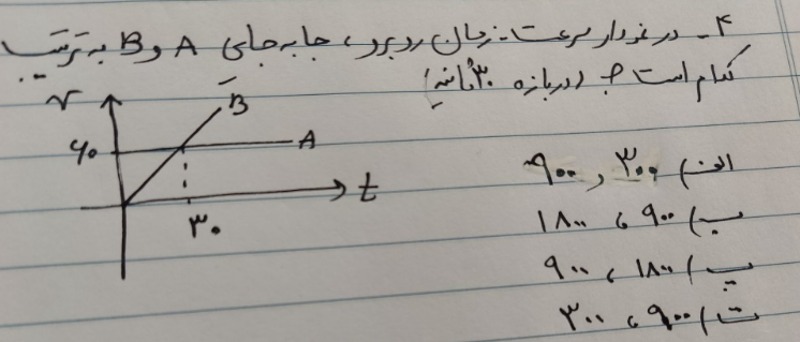 ۴- در نمودار سرعت-زمان روبرو، جابه جای A و B به ترتیب
کدام است؟ (در بازه ۳۰ ثانیه)
v
B
۶۰
A
t
۳۰
الف) ۳۰۰ و ۹۰۰
ب) ۹۰۰ ، ۱۸۰۰
پ) ۱۸۰۰ ، ۹۰۰
ت) ۹۰۰ ، ۳۰۰